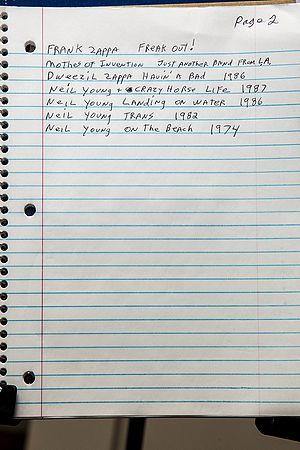 Page 2
FRANK ZAPPA FREAK OUT!
MOTHES OF INVENTION JUST ANOTHER BAND FROM L.A.
DWEEZIL ZAPPA HAVIN' A BAD 1986
NEIL YOUNG + CRAZY HORSE LIFE 1987
NEIL YOUNG LANDING ON WATER 1986
NEIL YOUNG TRANS 1982
NEIL YOUNG ON THE BEACH 1974